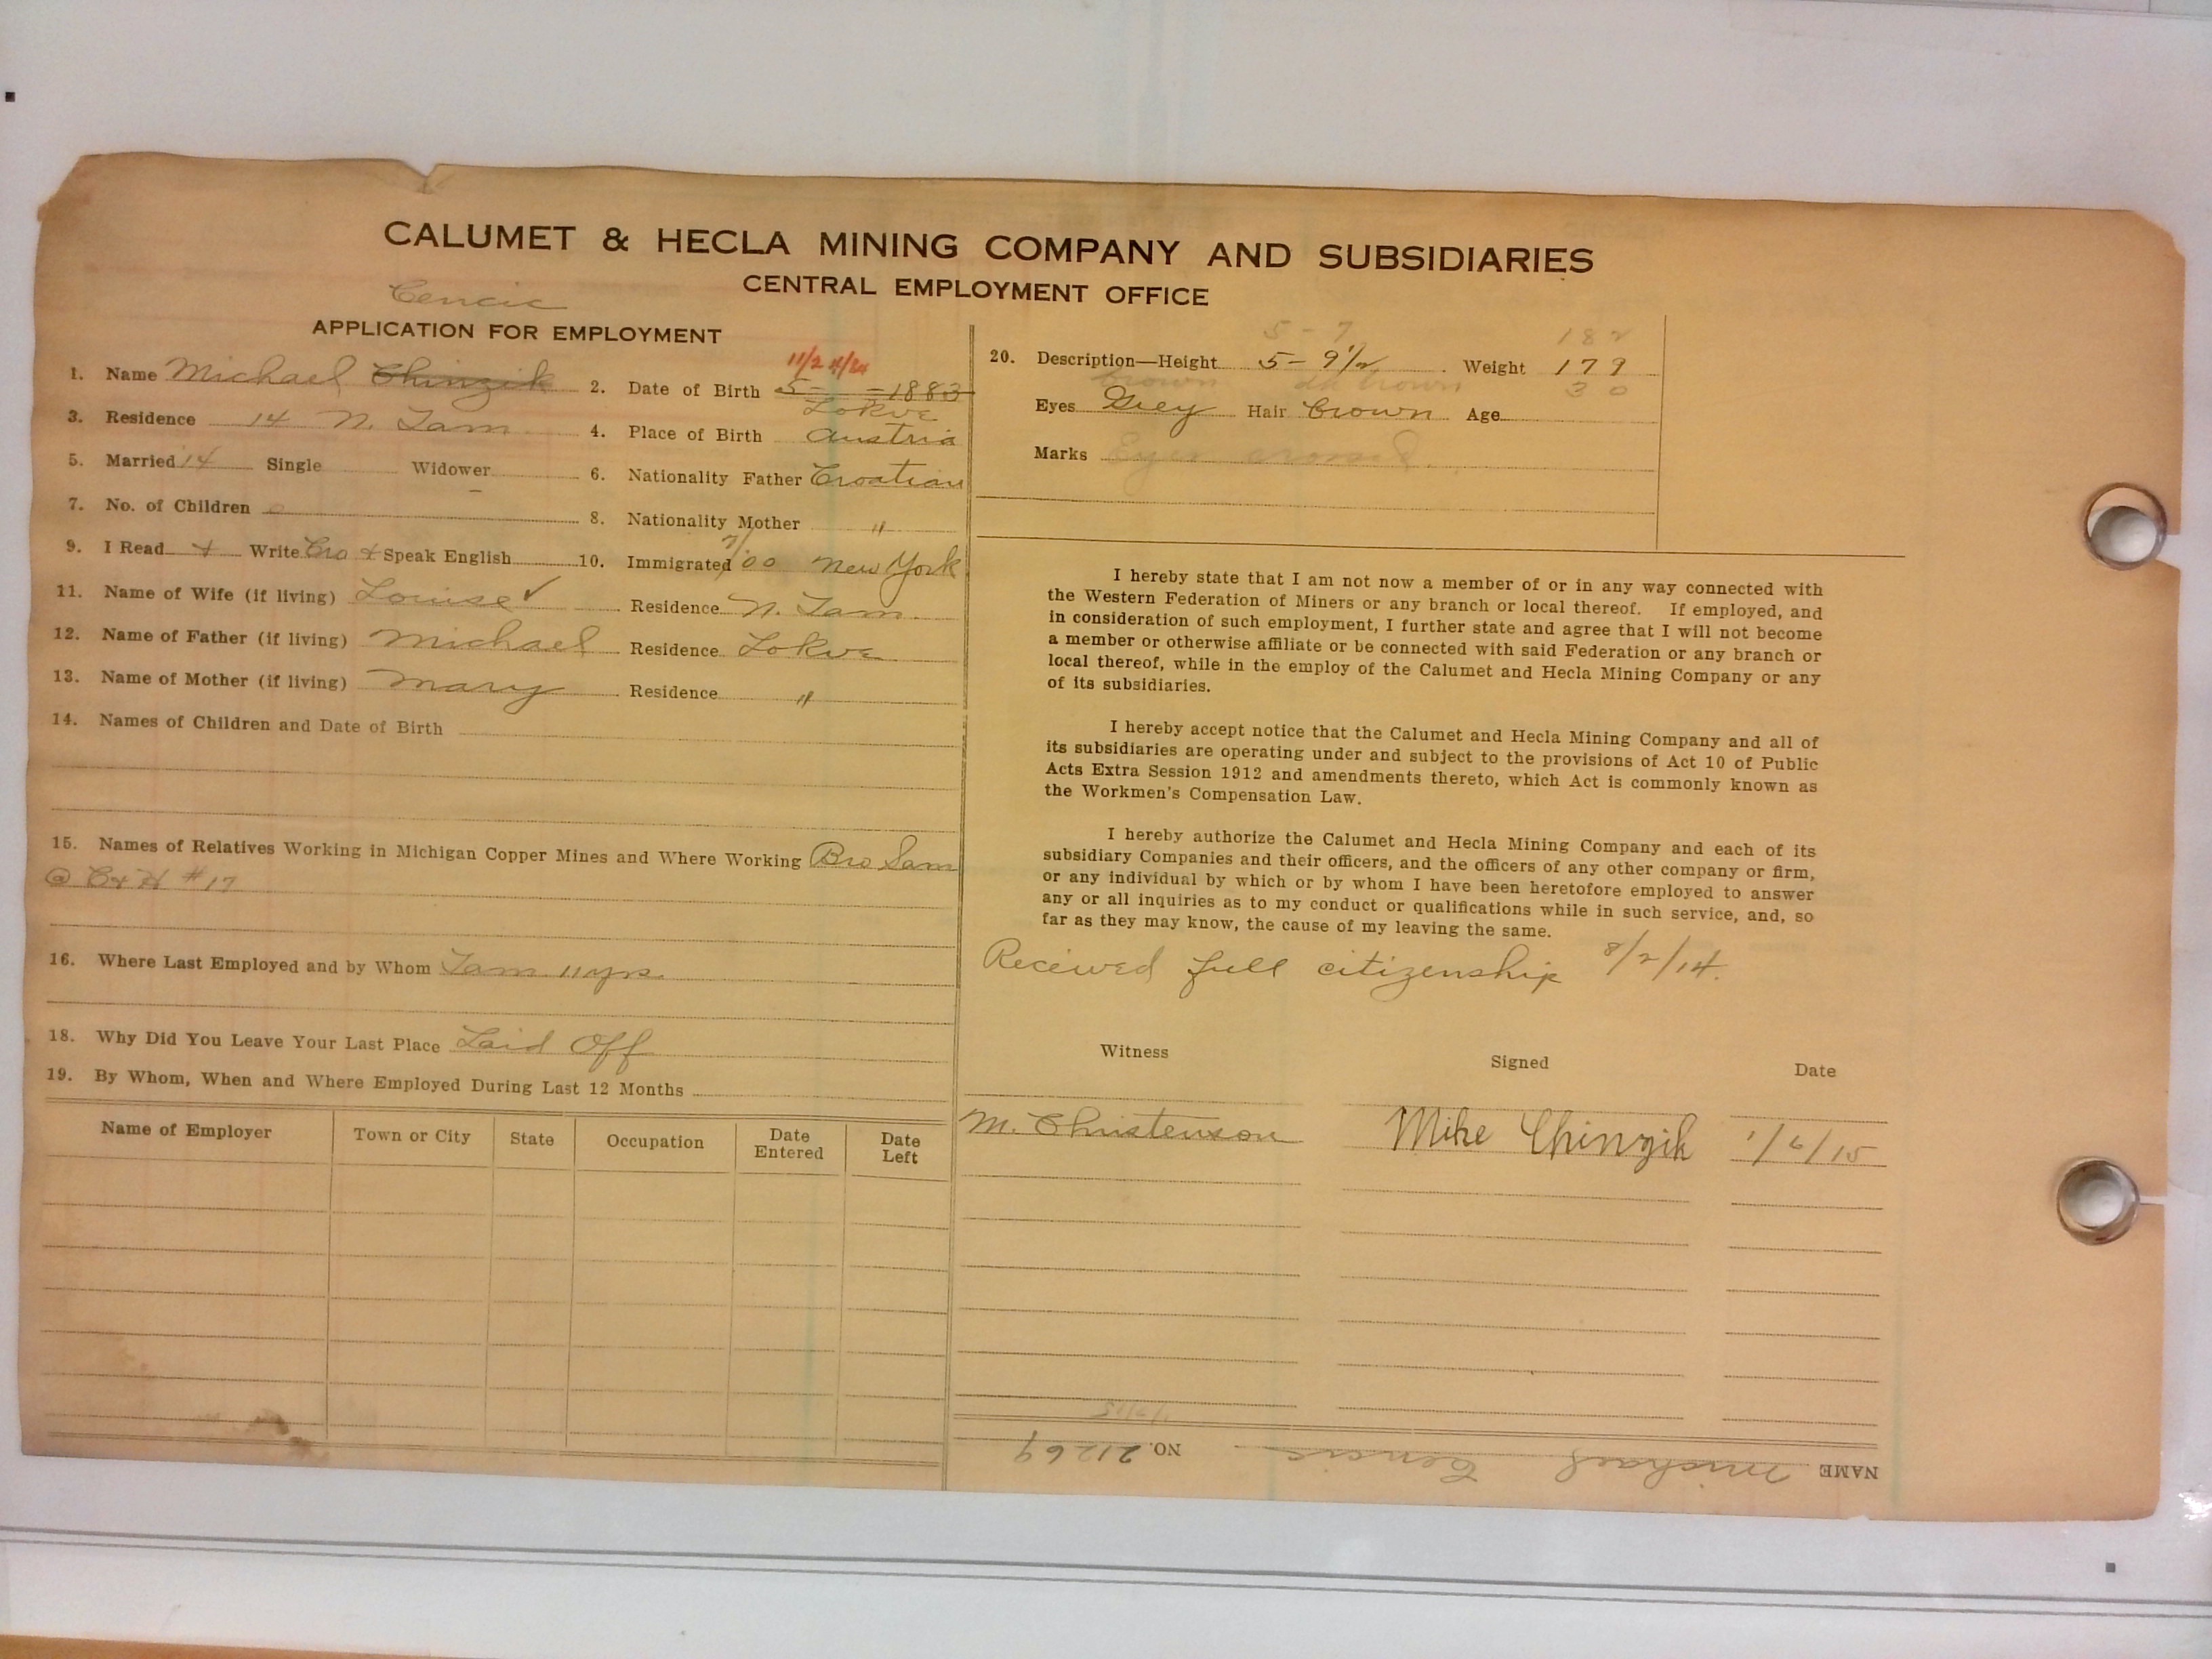 CALUMET & HECLA MINING COMPANY AND SUBSIDIARIES
CENTRAL EMPLOYMENT OFFICE
Cencic
APPLICATION FOR EMPLOYMENT
1. Name Michael Chinzik
2. Date of Birth 5- =1883
3. Residence 14 N. Tam
4. Place of Birth Lokve Austria
5. Married '14 Single Widower
6. Nationality Father Croatian
7. No. of Children 0
8. Nationality Mother "
9. I Read + Write Cro + Speak English
10. Immigrated 7/00 New York
11. Name of Wife (if living) Louise ✓ Residence N. Tam.
12. Name of Father (if living) Michael Residence Lokve
13. Name of Mother (if living) Mary Residence "
14. Names of Children and Date of Birth
15. Names of Relatives Working in Michigan Copper Mines and Where Working Bro Sam
@ C & H #17
16. Where Last Employed and by Whom Tam 11 yrs.
18. Why Did You Leave Your Last Place Laid Off
19. By Whom, When and Where Employed During Last 12 Months
Name of Employer Town or City State Occupation Date Entered Date Left
5-7 182
20. Description—Height 5-9½ Weight 179
brown dk brown 30
Eyes Grey Hair Brown Age
Marks Eyes crossed.
I hereby state that I am not now a member of or in any way connected with
the Western Federation of Miners or any branch or local thereof. If employed, and
in consideration of such employment, I further state and agree that I will not become
a member or otherwise affiliate or be connected with said Federation or any branch or
local thereof, while in the employ of the Calumet and Hecla Mining Company or any
of its subsidiaries.
I hereby accept notice that the Calumet and Hecla Mining Company and all of
its subsidiaries are operating under and subject to the provisions of Act 10 of Public
Acts Extra Session 1912 and amendments thereto, which Act is commonly known as
the Workmen's Compensation Law.
I hereby authorize the Calumet and Hecla Mining Company and each of its
subsidiary Companies and their officers, and the officers of any other company or firm,
or any individual by which or by whom I have been heretofore employed to answer
any or all inquiries as to my conduct or qualifications while in such service, and, so
far as they may know, the cause of my leaving the same.
Received full citizenship 8/2/14.
Witness Signed Date
M. Christenson Mike Chinzik 1/6/15
1/7/15
NAME Michael Cencic NO. 21269